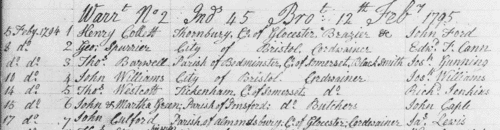 Warrt No 2 Ind 45 Brot 12th Feby 1795
5 Feby 1794 1 Henry Collett Thornbury, C. of Glocester Brazier & John Ford
8 do 2 Geo: Spurrier City of Bristol Cordwainer Edwd T. Cann
do do 3 Thos Barwell Parish of Bedminster, C. of Somerset, Blacksmith Jos: Gunning
10 do 4 John Williams City of Bristol Cordwainer Jos: Williams
14 do 5 Thos Westcott Tickenham, C. of Somerset, do Richd Jenkins
15 do 6 John & Martha Green; Parish of Pensford; do Butchers John Caple
17 do 7 John Culford Parish of Almondsbury; C. of Glocester; Cordwainer Jas Lewis